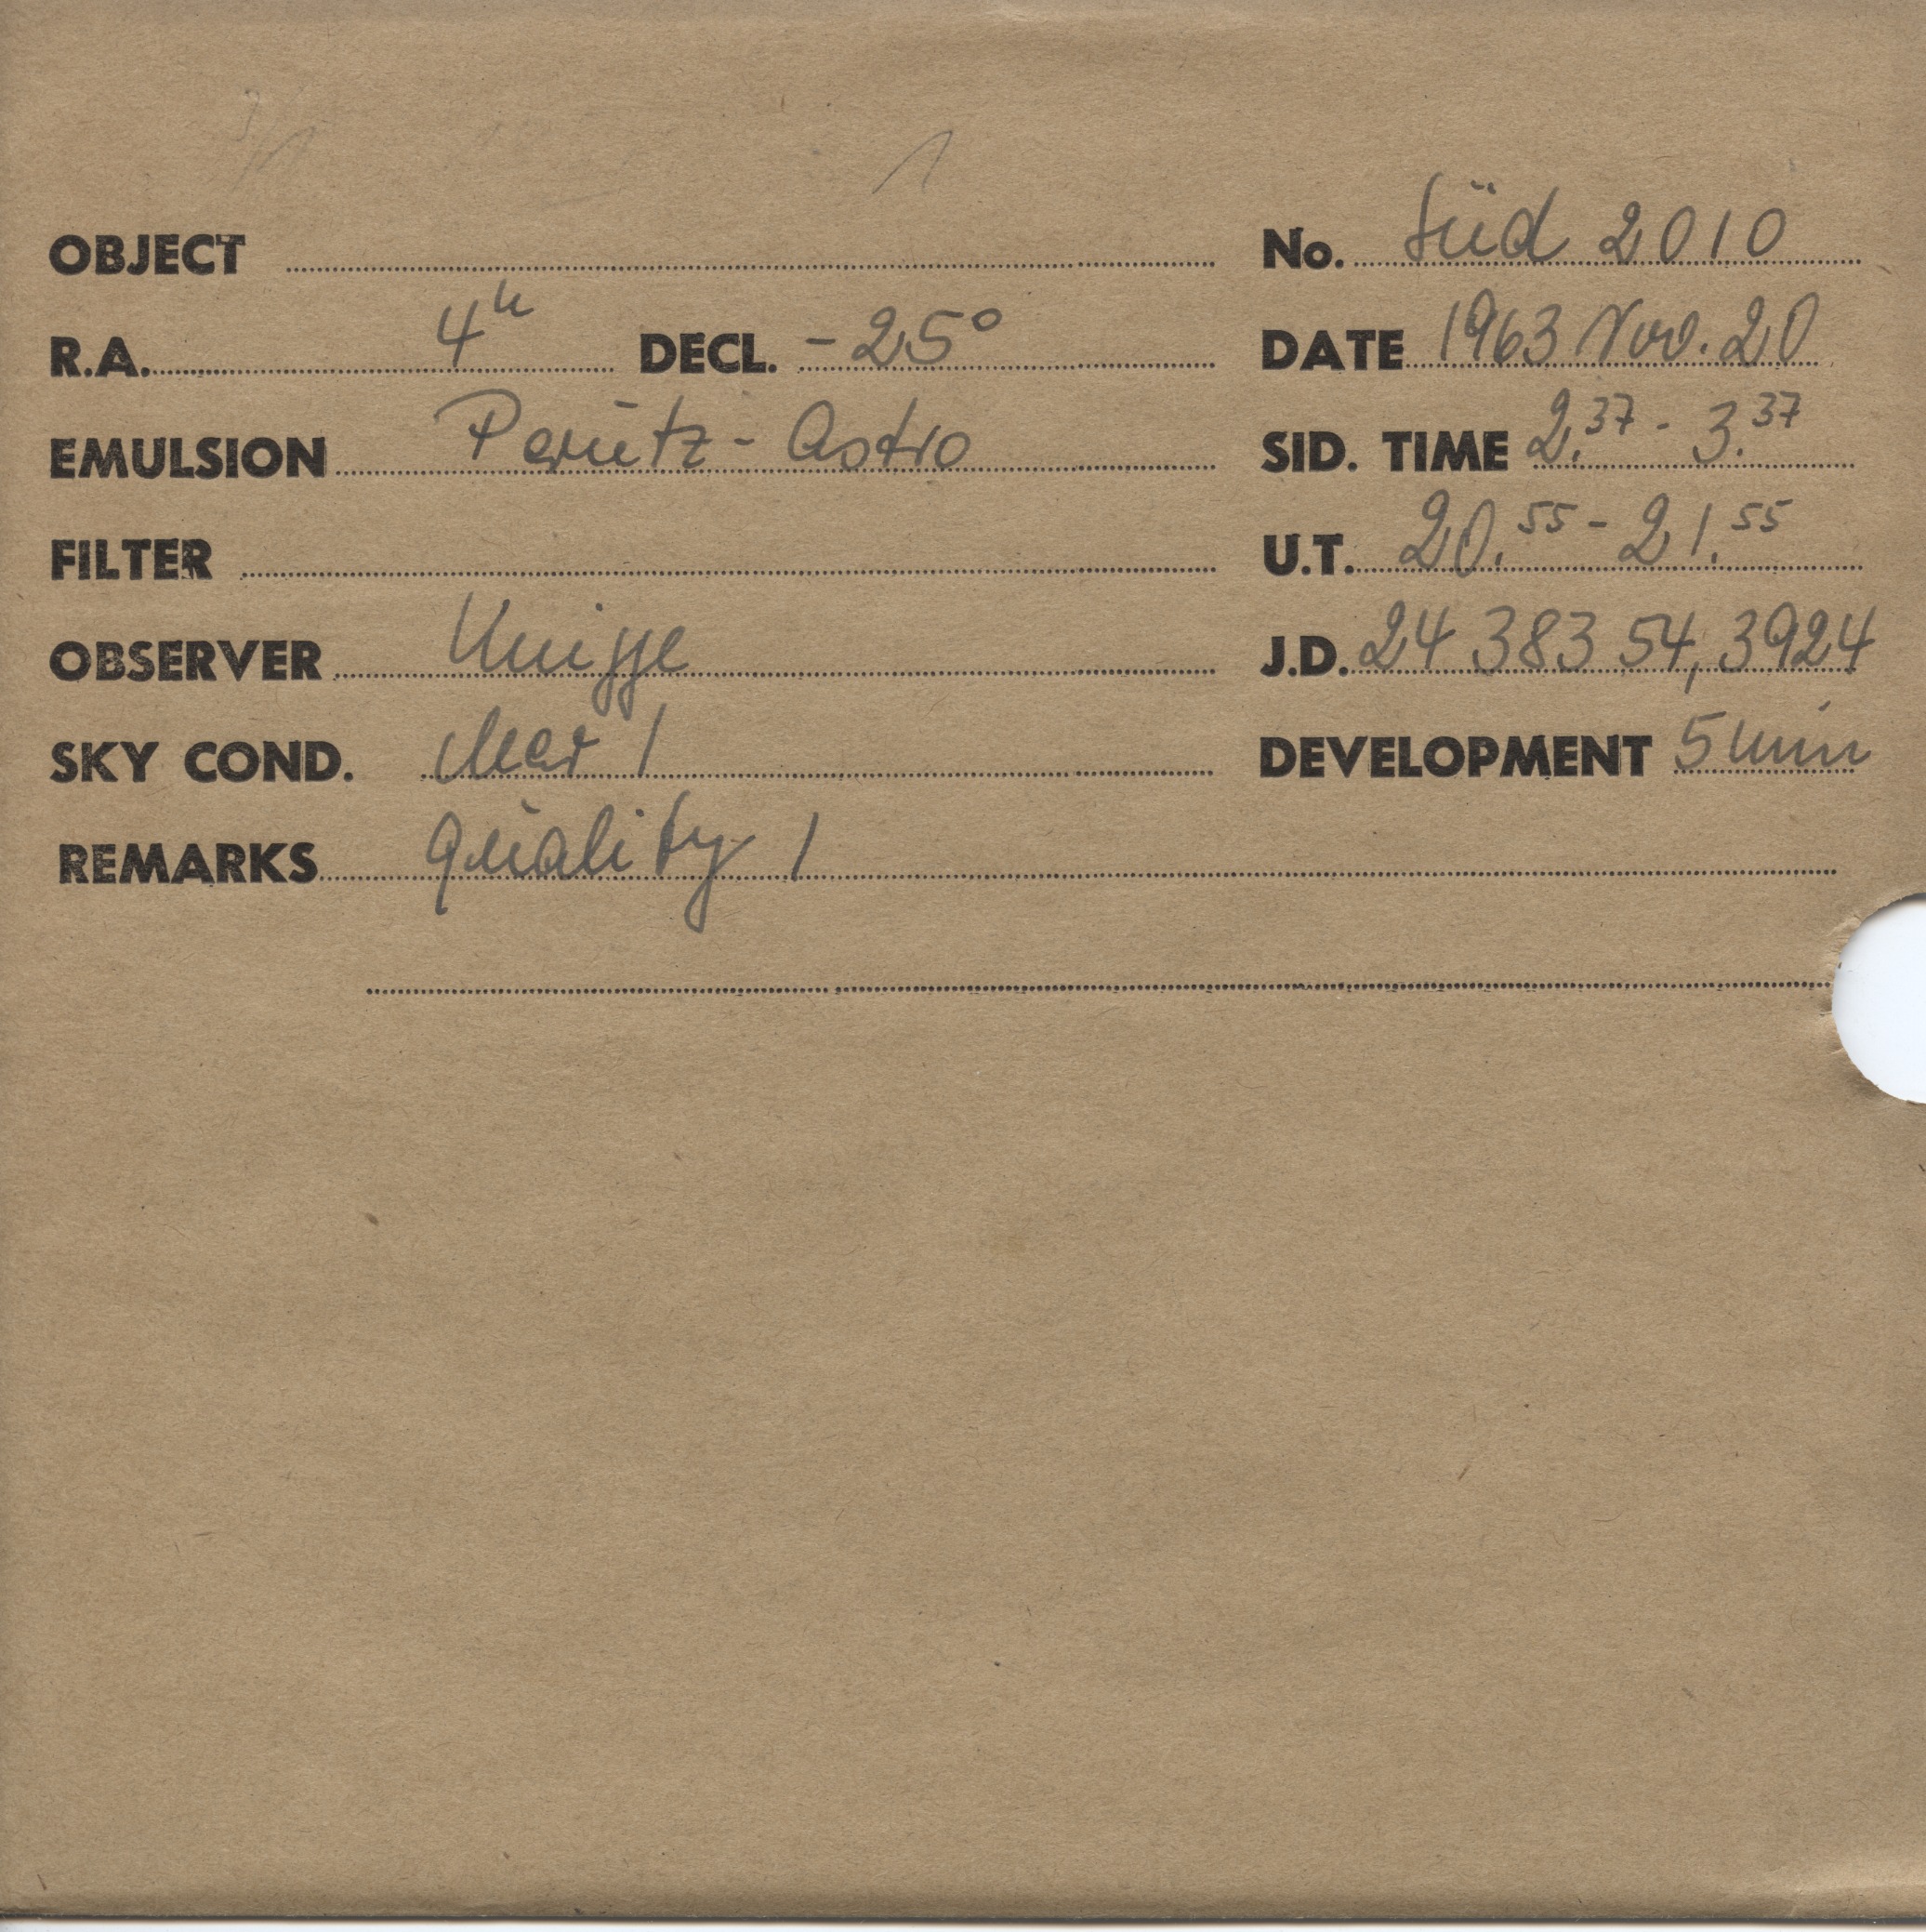 OBJECT No. Süd 2010
R.A. 4h DECL. -25° DATE 1963 Nov. 20
EMULSION Perutz - Astro SID. TIME 2.37 - 3.37
FILTER U.T. 20.55 - 21.55
OBSERVER Knigge J.D. 24 383 54,3924
SKY COND. clear 1 DEVELOPMENT 5 min
REMARKS quality 1